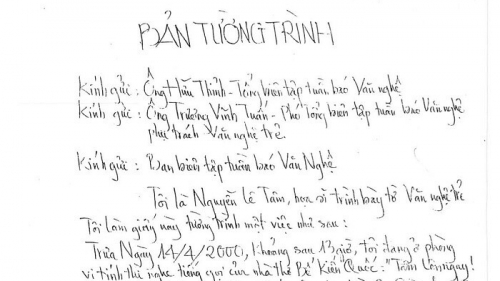 BẢN TƯỜNG TRÌNH
Kính gửi: Ông Hữu Thỉnh - Tổng biên tập tuần báo Văn nghệ
Kính gửi: Ông Trương Vĩnh Tuấn - Phó tổng biên tập tuần báo Văn nghệ
phụ trách Văn nghệ trẻ.
Kính gửi: Ban biên tập tuần báo Văn Nghệ
Tôi là Nguyễn Lê Tâm, họa sĩ trình bày tờ Văn nghệ trẻ
Tôi làm giấy này tường trình một việc như sau:
Trưa Ngày 14/4/2000, khoảng sau 13 giờ, tôi đang ở phòng
vi tính thì nghe tiếng gọi của nhà thơ Bế Kiến Quốc: "Tâm lên ngay!